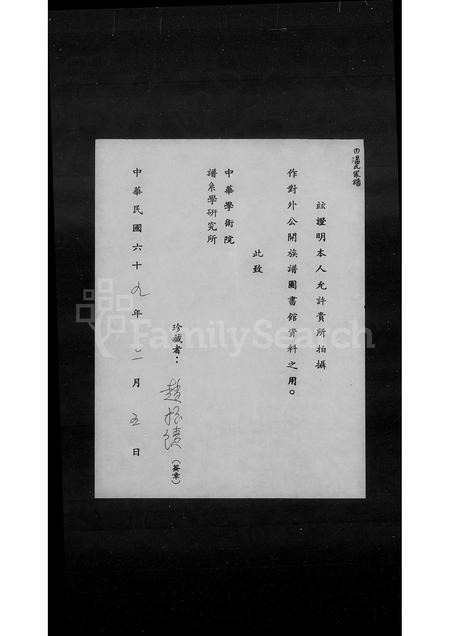 茲證明本人允許貴所拍攝
作對外公開族譜圖書館資料之用。
此致
中華學術院
譜系學研究所
珍藏者：趙振績（簽章）
中華民國六十九年二月五日
FamilySearch